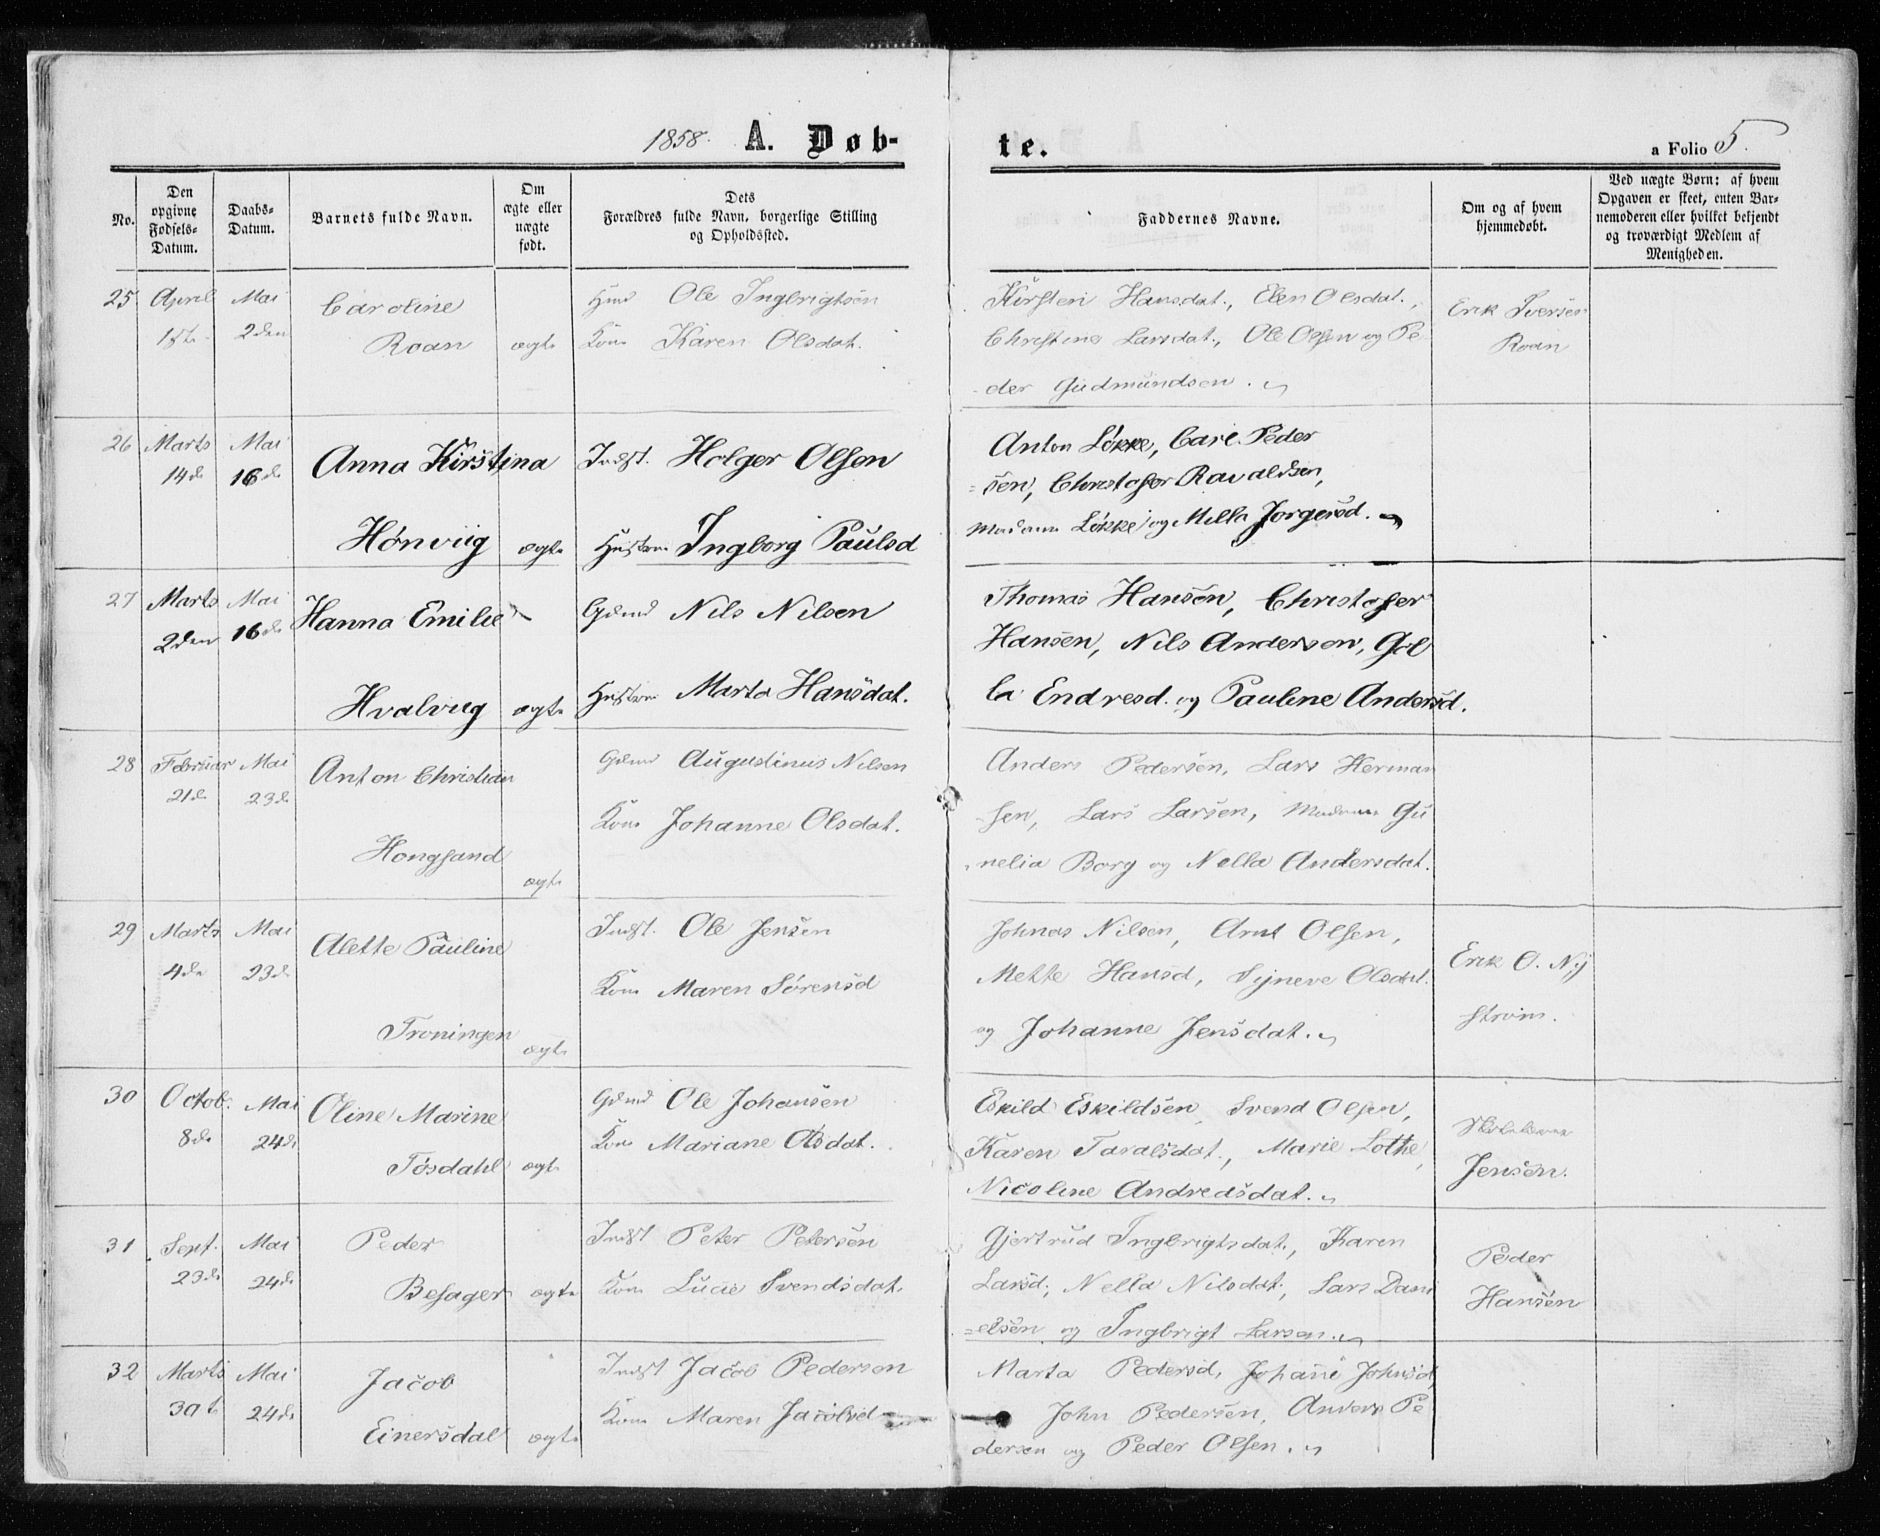 1858. A. Døb-
te.
a Folio 5.
No.
Den opgivne Fødsels-Datum.
Daabs-Datum.
Barnets fulde Navn.
Om ægte eller uægte født.
Dets Forældres fulde Navn, borgerlige Stilling og Opholdssted.
Faddernes Navne.
Om og af hvem hjemmedøbt.
Ved uægte Børn: af hvem Opgaven er skeet, enten Barnemoderen eller hvilket bekjendt og troværdigt Medlem af Menigheden.
25. April Mai Caroline Ole Ingbrigtsen Kirsten Hansdat., Elen Olsdat., Erik Iversen
1ste 2den Roan ægte Kone Karen Olsdat. Christine Larsdat., Ole Olsen og Pe Roan
der Gudmundsen.
26 Marts Mai Anna Kirstina Indst. Holger Olsen Anton Løkke, Carl Peder
14de 16de =sen, Christofer Ravaldsen,
Hønviig ægte Hustrue Ingborg Paulsd Madame Løkke og Mella Jorgersd.
27 Marts Mai Hanna Emilie Gdmd Nils Nilsen Thomas Hansen, Christofer
2den 16de Hansen, Nils Anderson,
Hvalviig ægte Hustrue Marta Hansdat. Endresd. og Pauline Andersd.
28 Februar Mai Anton Christian Gdmd Augustinus Nilsen Anders Pedersen, Lars Herman
21de 23de Kone Johanne Olsdat. sen, Lars Larsen, Madame Gu
Hongsand ægte nelia Borg og Nella Andersdat.
29 Marts Mai Alette Pauline Indst. Ole Jensen Johnas Nilsen, Arnt Olsen,
4de 23de Kone Maren Sørensd Mette Hansd, Sijneve Olsdat. Erik O. Nij
Troningen ægte og Johanne Jensdat. strøm.
30 Octob. Mai Oline Marine Gdmd Ole Johansen Eskild Eskildsen, Svend Olsen,
8de 24de Kone Mariane Olsdat. Karen Taralsdat., Marie Lothe, Skolelærer
Tøsdahl ægte Nicoline Andreasdat. Jensen.
31 Sept. Mai Peder Indst Peter Petersen Gjertrud Ingbrigtsdat., Karen Peder
23de 24de Besager ægte Kone Lucie Svendsdat. Larsd., Nella Nilsdat., Lars Dani Hansen
=elsen og Ingbrigt Larsen.
32 Marts Mai Jacob Indst Jacob Pedersen Marta Pedersd, Johane Johnsd,
30t 24de Kone Maren Jacobsd John Pedersen, Anders Pe
Einersdal ægte dersen og Peder Olsen.